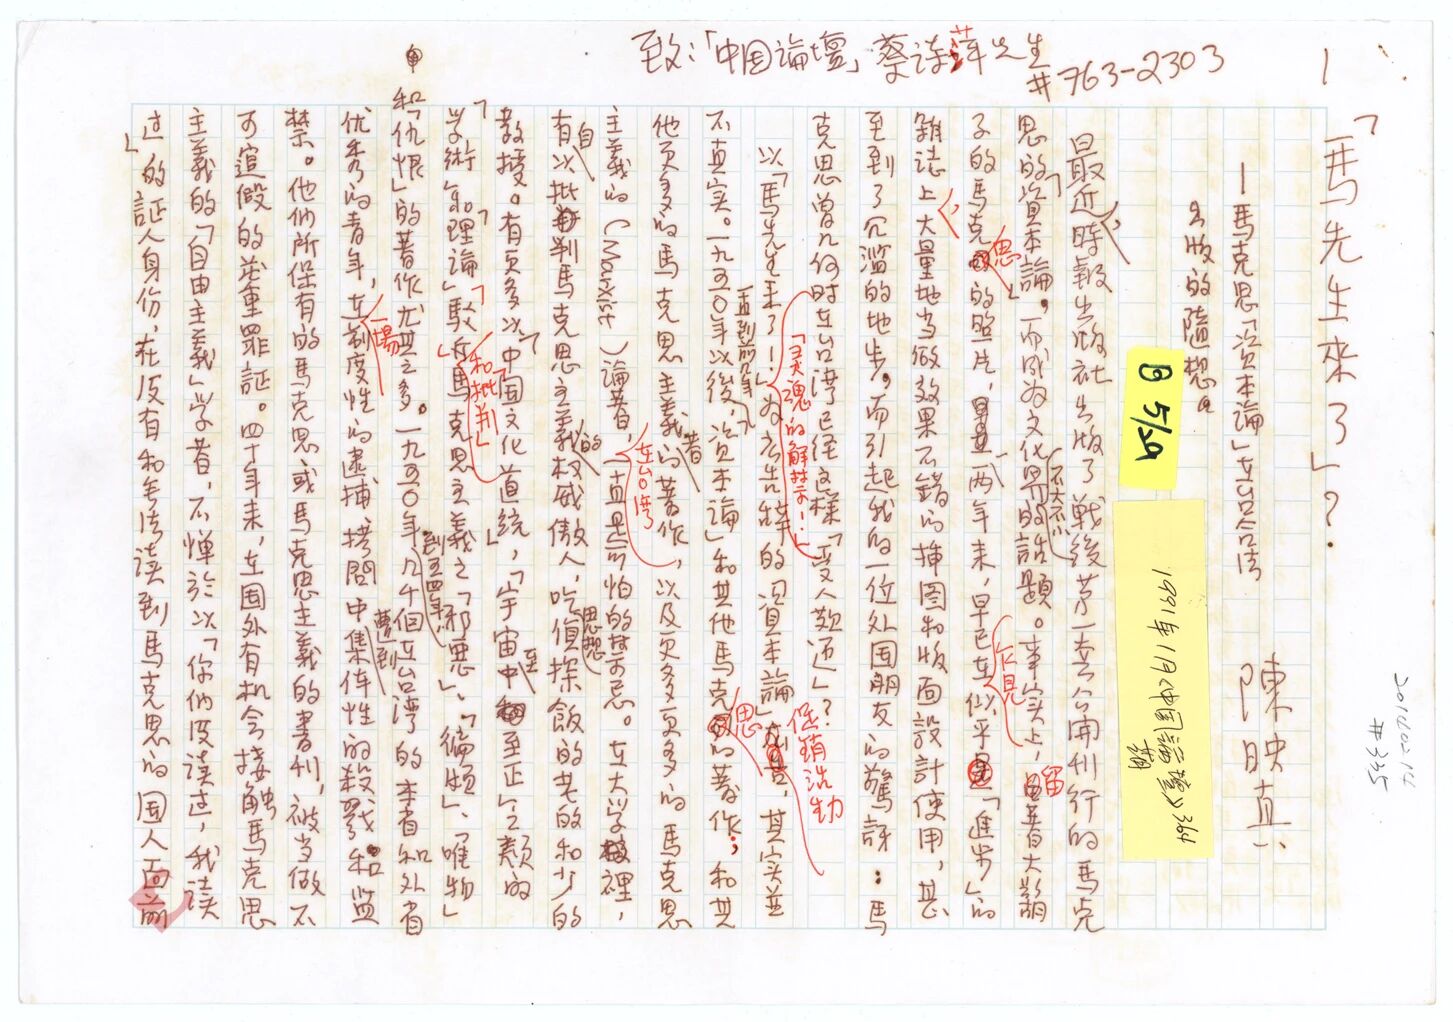 致：「中国論壇」蔡诗萍先生
#763-2303
1
「馬先生来了」？
—馬克思「資本論」在台合法
出版的隨想。
陳映真
B 5/29
1991年1月《中国論壇》364
期
20160214
#335
最近，時報出版社出版了戰後第一套公開刊行的馬克
思的「資本論」。而成为文化界不大不小的話題。事实上，留着大鬍
子的馬克思的照片，最其两年来，早已在似乎乍見「進步」的
雜誌上，大量地当做效果不錯的插图和版面設計使用，甚
至到了氾滥的地步，而引起我的一位外国朋友的驚訝：馬
克思曾几何时在台湾已经这样「受人歡迎」？
以「馬先生来了！」「灵魂的解禁！」为広告辞的「資本論」促銷活動，其实並
不真实。一九五〇年以後，一直到前几年，「資本論」和其他馬克思的著作，和其
他更多的馬克思主義者的著作，以及更多更多的馬克思
主義的（Marxist）論著，在台湾一直是可怕的思想禁忌。在大学裡，
有自以批判馬克思主義的权威傲人，吃偵探飯的老的和少的
教授。有更多以「中国文化道統」，「宇宙至中至正」之類的
「学術」和「理論」駁斥和批判「馬克思主義之「邪惡」、「偏頗」、「唯物」
和「仇恨」的著作尤其之多。一九五〇年到五四年，几千個在台湾的本省和外省
优秀的青年，在一場制度性的逮捕、拷問中曹到集体性的殺戮和監
禁。他們所保有的馬克思或馬克思主義的書刊，被当做不
可寬假的嚴重罪証。四十年来，在国外有机会接触馬克思
主義的「自由主義」学者，不憚於以「你們没读过，我读
过」的証人身份，在没有和无法读到馬克思的国人面前